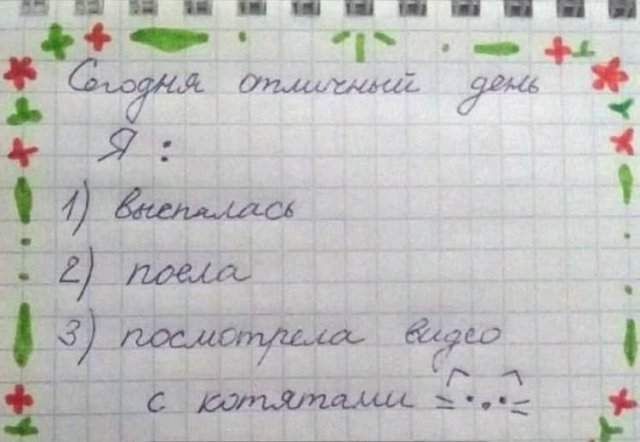 Сегодня отличный день
Я :
1) выспалась
2) поела
3) посмотрела видео
с котятами